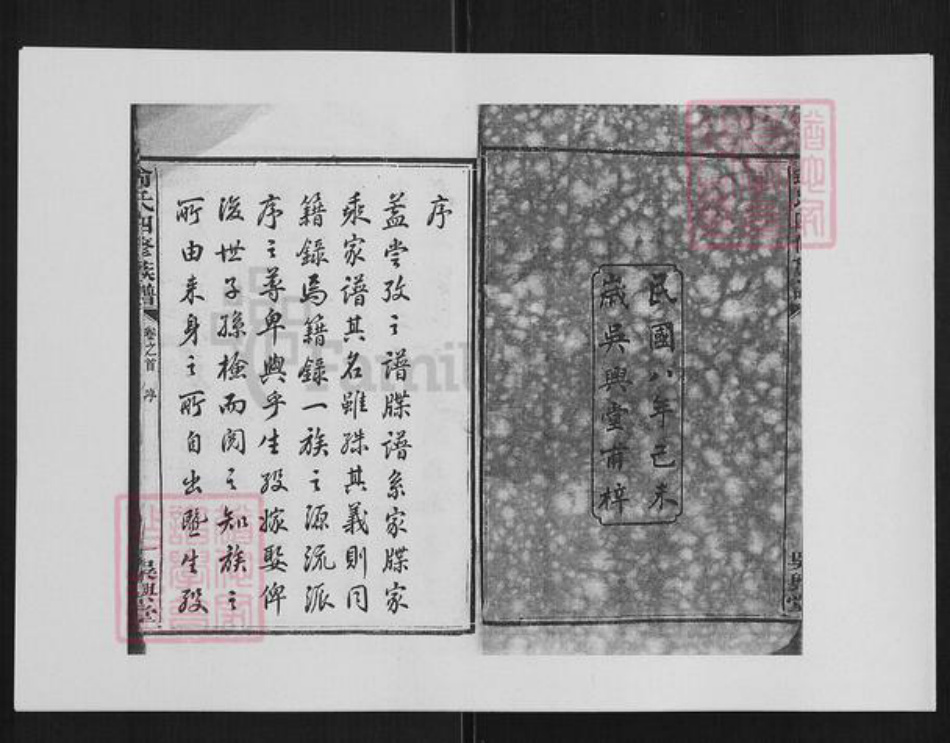 民國八年己未
歲吳興堂甫梓
序
蓋嘗攷之譜牒譜系家牒家
乘家譜其名雖殊其義則同
籍錄焉籍錄一族之源流派
序之尊卑與乎生歿嫁娶俾
後世子孫檢而閱之知族之
所由来身之所自出暨生歿
氏四修族譜
卷之首
序
一
吳興堂